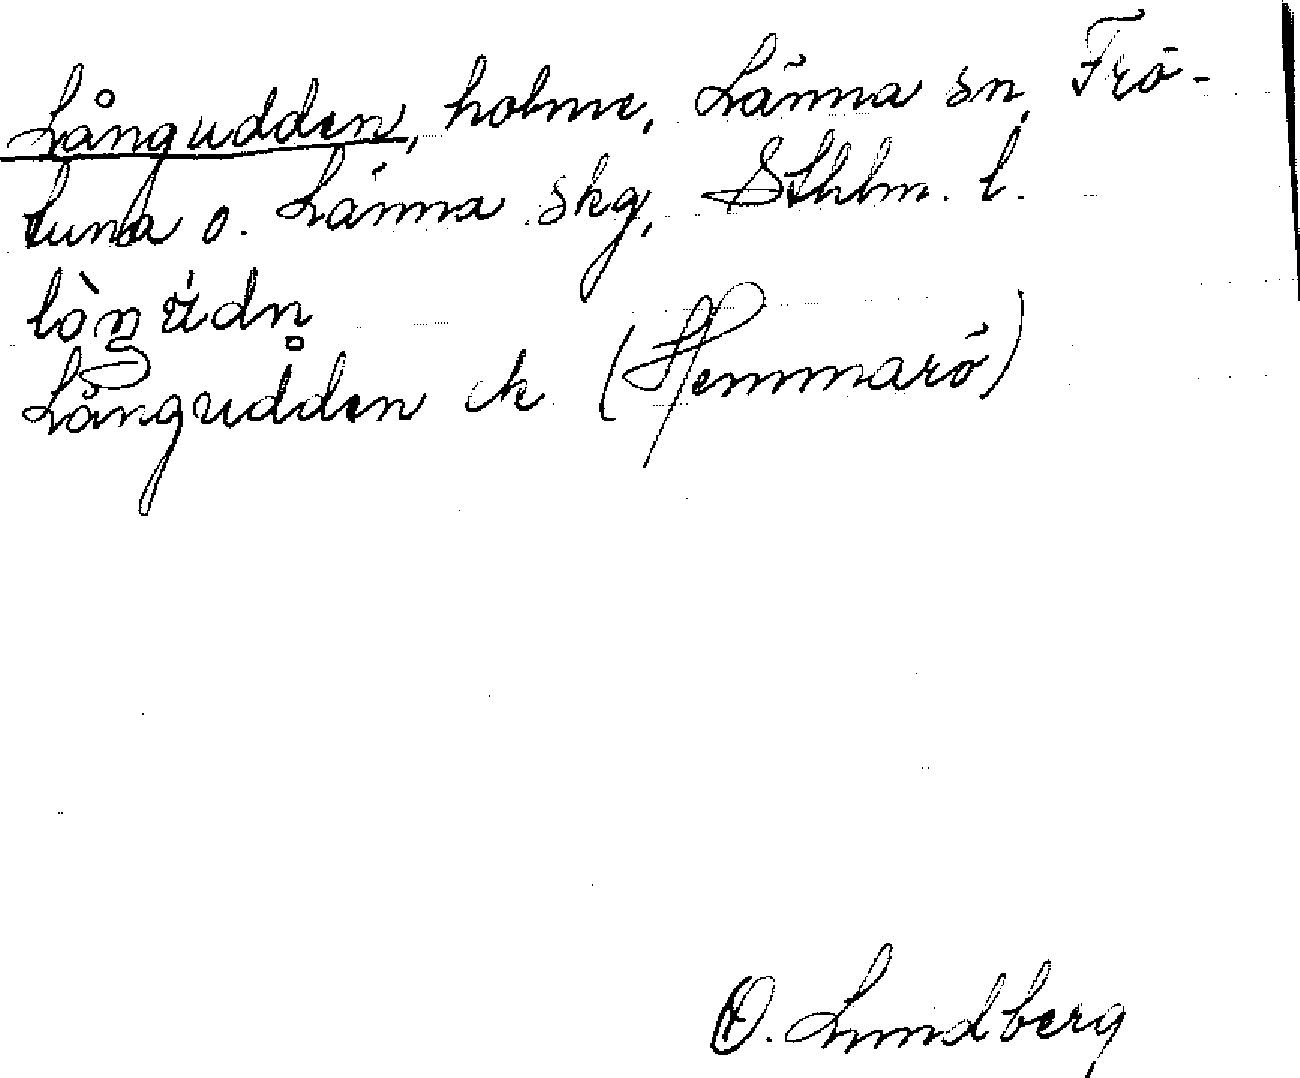 Långudden, holme, Länna sn, Frö-
tuna o. Länna skg, Sthlm. l.
lòŋ ú́dn̥
Långudden ek (Hemmarö)
O. Lundberg